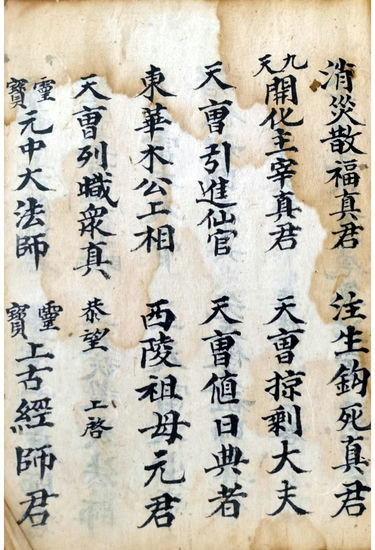 消災散福真君　注生鈎死真君
九天開化主宰真君　天曹掠剩大夫
天曹引進仙官　天曹值日典者
東華木公上相　西陵祖母元君
天曹列職衆真　恭望　上啓
靈寶元中大法師　靈寶上古經師君